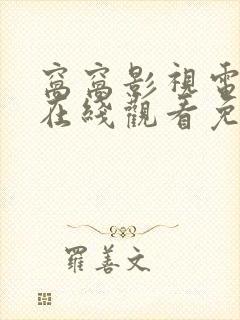 窩窩影視電
在綫觀看免
羅善文